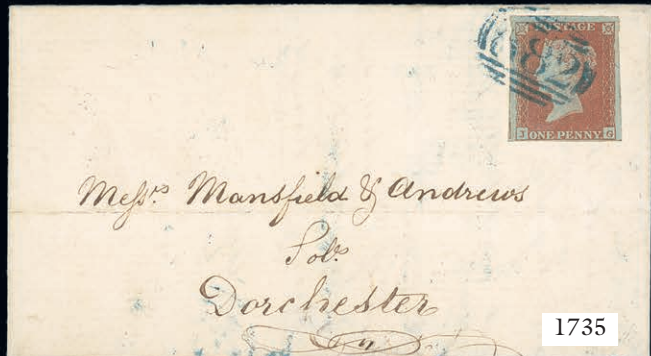 POSTAGE
882
J G
ONE PENNY
Messrs. Mansfield & Andrews
Solrs
Dorchester
1735